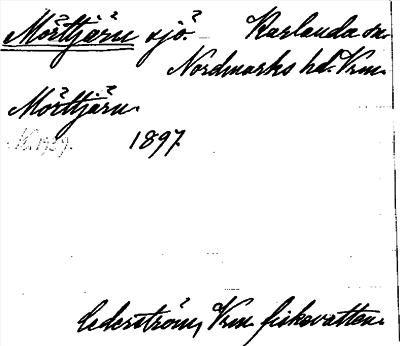 Mörttjärn sjö. Karlanda sn.
Nordmarks hd. Vrm.
Mörttjärn.
N. 1929. 1897.
Cederström, Vrm. fiskevatten.